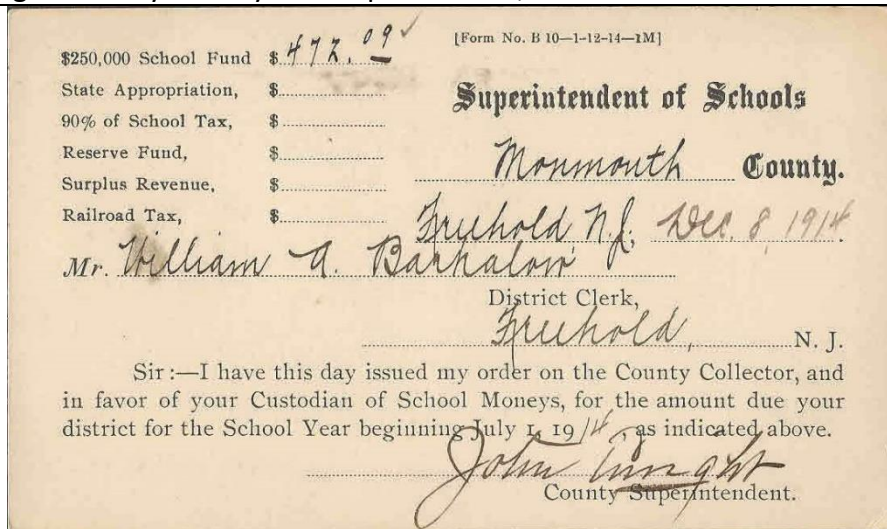 [Form No. B 10—1-12-14—1M]
$250,000 School Fund $ 472.09 ✓
State Appropriation, $
90% of School Tax, $
Reserve Fund, $
Surplus Revenue, $
Railroad Tax, $
Superintendent of Schools
Monmouth County.
Freehold N.J., Dec. 8, 1914.
Mr. William A. Barkalow
District Clerk,
Freehold, N. J.
Sir:—I have this day issued my order on the County Collector, and
in favor of your Custodian of School Moneys, for the amount due your
district for the School Year beginning July 1, 1914, as indicated above.
John Enright
County Superintendent.